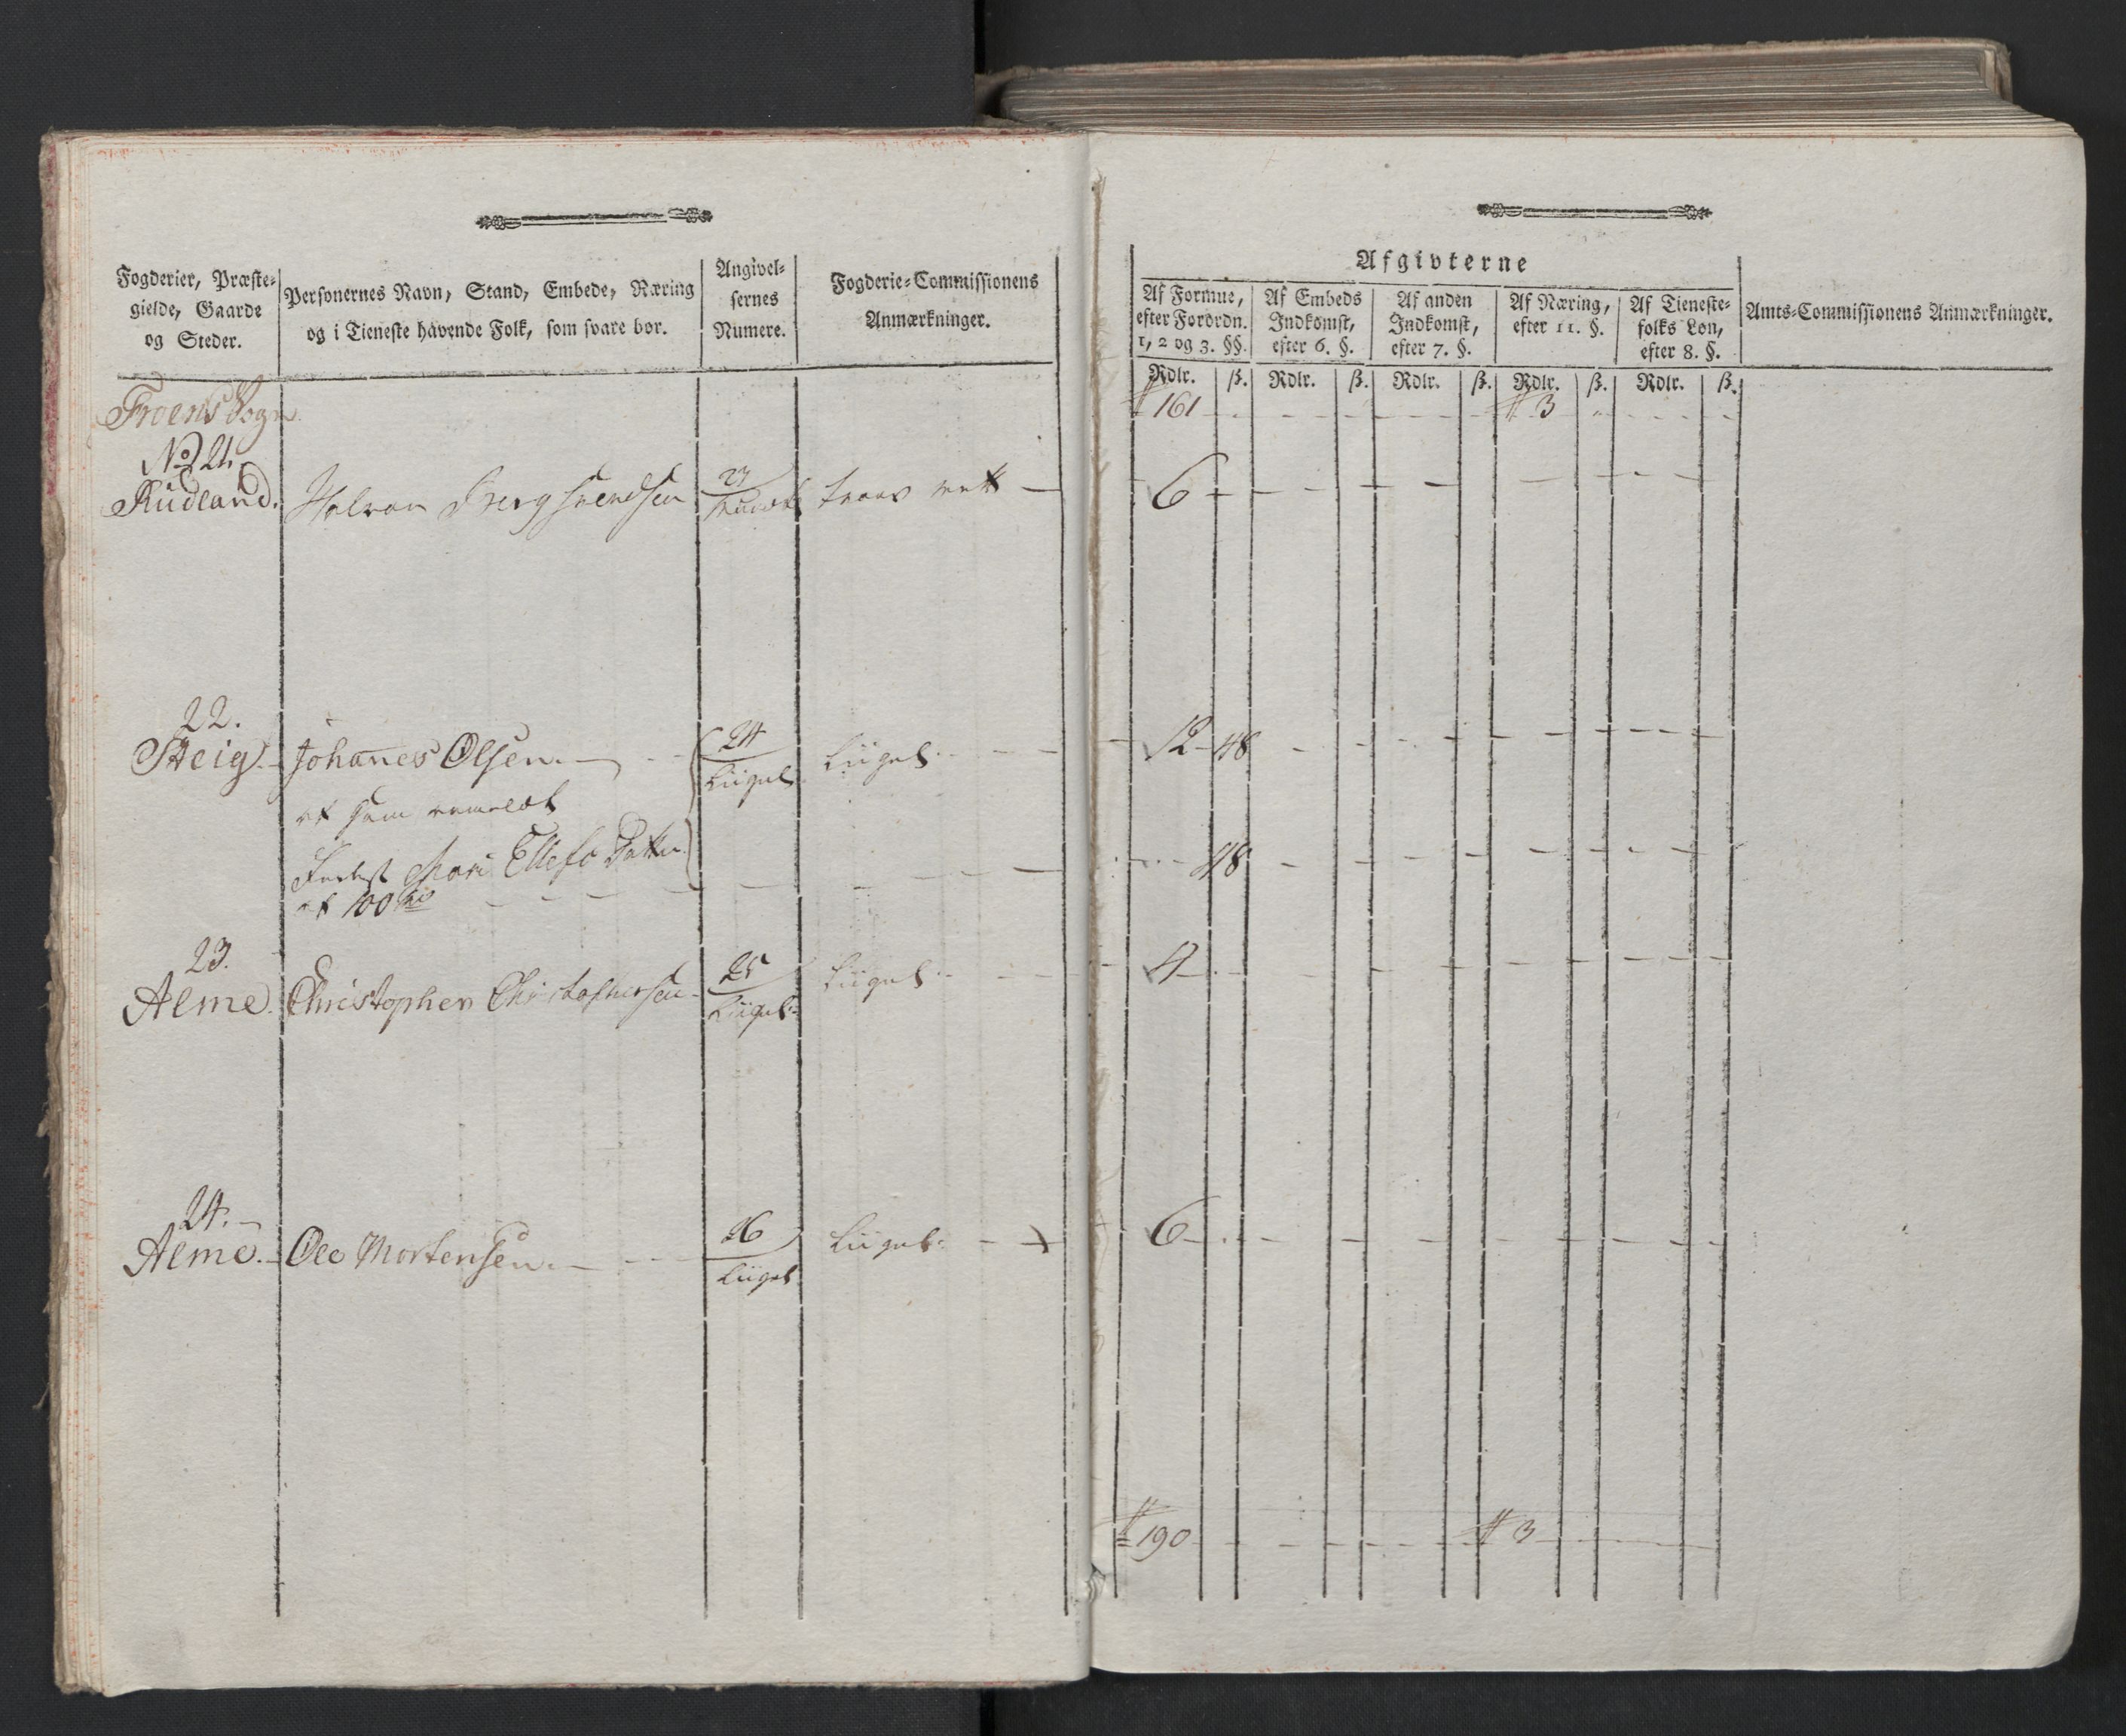 Fogderier, Præste-
gielde, Gaarde
og Steder.
Personernes Navn, Stand, Embede, Næring
og i Tieneste havende Folk, som svare bør.
Angivel-
sernes
Numere.
Fogderie-Commissionens
Anmærkninger.
Froens Sogn
No 21.
Rudland.
Halvor
23
22.
Steig.
Johannes Olsen.
24
Liigel.
Liigel.
af 100
23.
Alme.
Christopher Christophersen
25
Liigel.
Liigel.
24.
Alme.
Ole Mortensen.
26
Liigel.
Liigel.
Afgivterne
Af Formue,
efter Forordn.
1, 2 og 3. §§.
Af Embeds
Indkomst,
efter 6. §.
Af anden
Indkomst,
efter 7. §.
Af Næring,
efter 11. §.
Af Tieneste-
folks Løn,
efter 8. §.
Amts-Commissionens Anmærkninger.
Rdlr. ß. Rdlr. ß. Rdlr. ß. Rdlr. ß. Rdlr. ß.
161 3
6
12 48
48
4
6
190 3